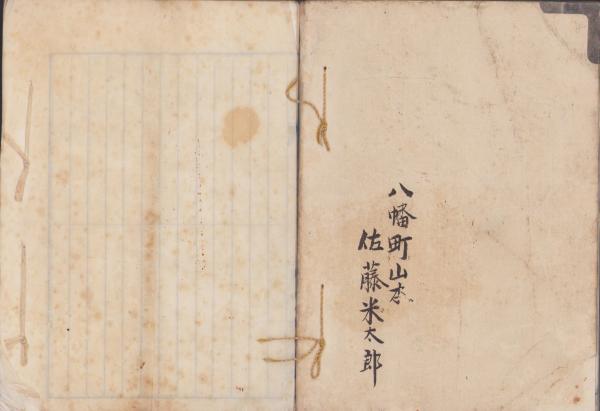 八幡町山本
佐藤米太郎